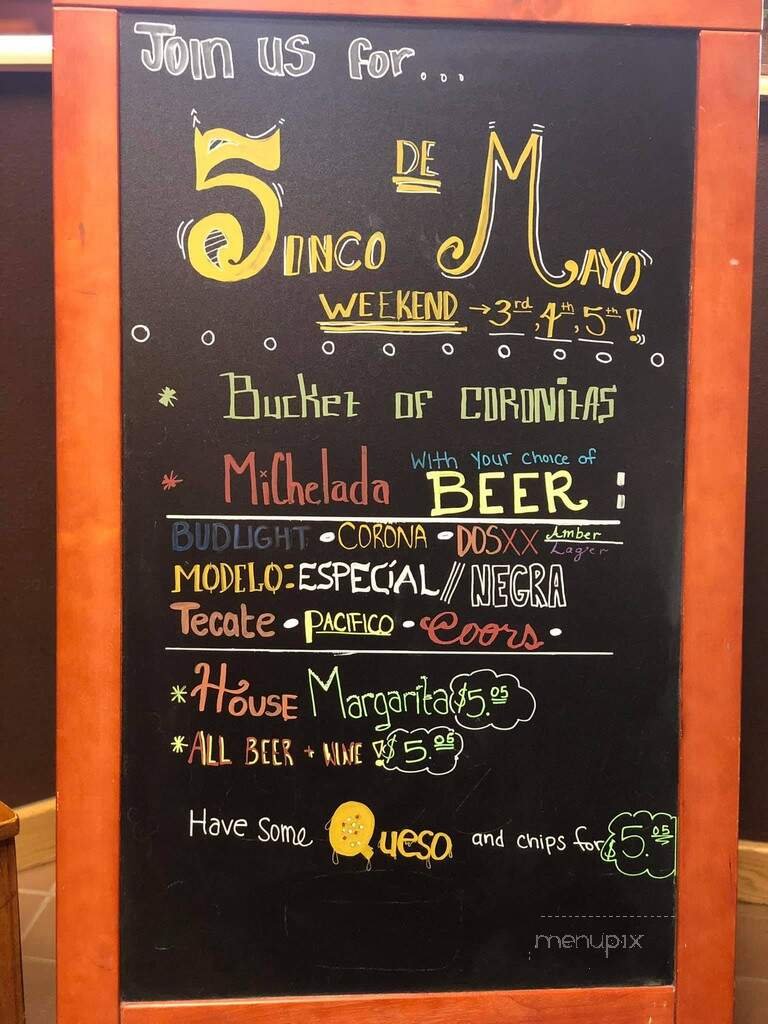 Join us for...
5inco DE Mayo
WEEKEND → 3rd, 4th, 5th !!
* Bucket of CORONITAS
* Michelada With your choice of BEER :
BUDLIGHT • CORONA • DOSXX Amber Lager
MODELO: ESPECIAL // NEGRA
Tecate • PACIFICO • Coors •
* House Margarita $5.05
* ALL BEER + WINE ! $5.05
Have Some Queso and chips for $5.05
menupix